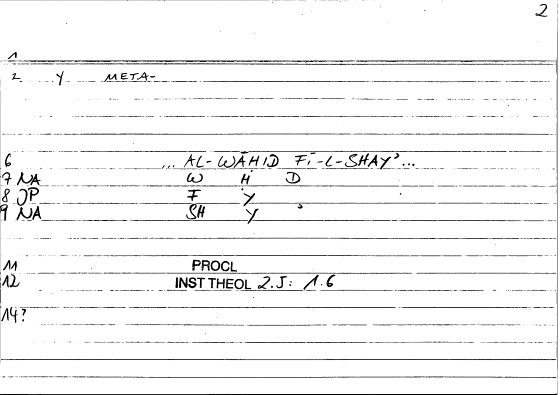 2
1
2 Y META-
6 ... AL-WĀḤID FĪ-L-SHAY' ...
7 NA W Ḥ D
8 JP F Y
9 NA SH Y '
11 PROCL
12 INST THEOL 2.J: 1.6
14?